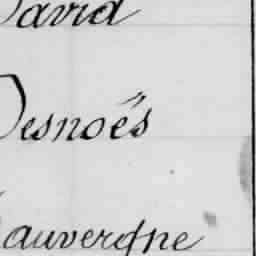 David
Desnoës
Lauvergne